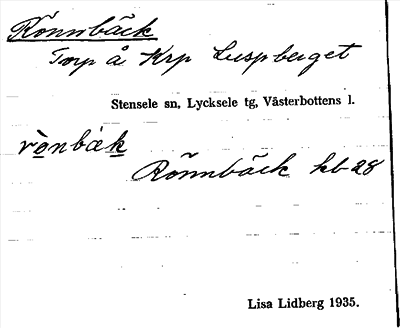 Rönnbäck
Torp å Krp Luspberget
Stensele sn, Lycksele tg, Västerbottens l.
rò̲nbäk̲
Rönnbäck kb 28
Lisa Lidberg 1935.